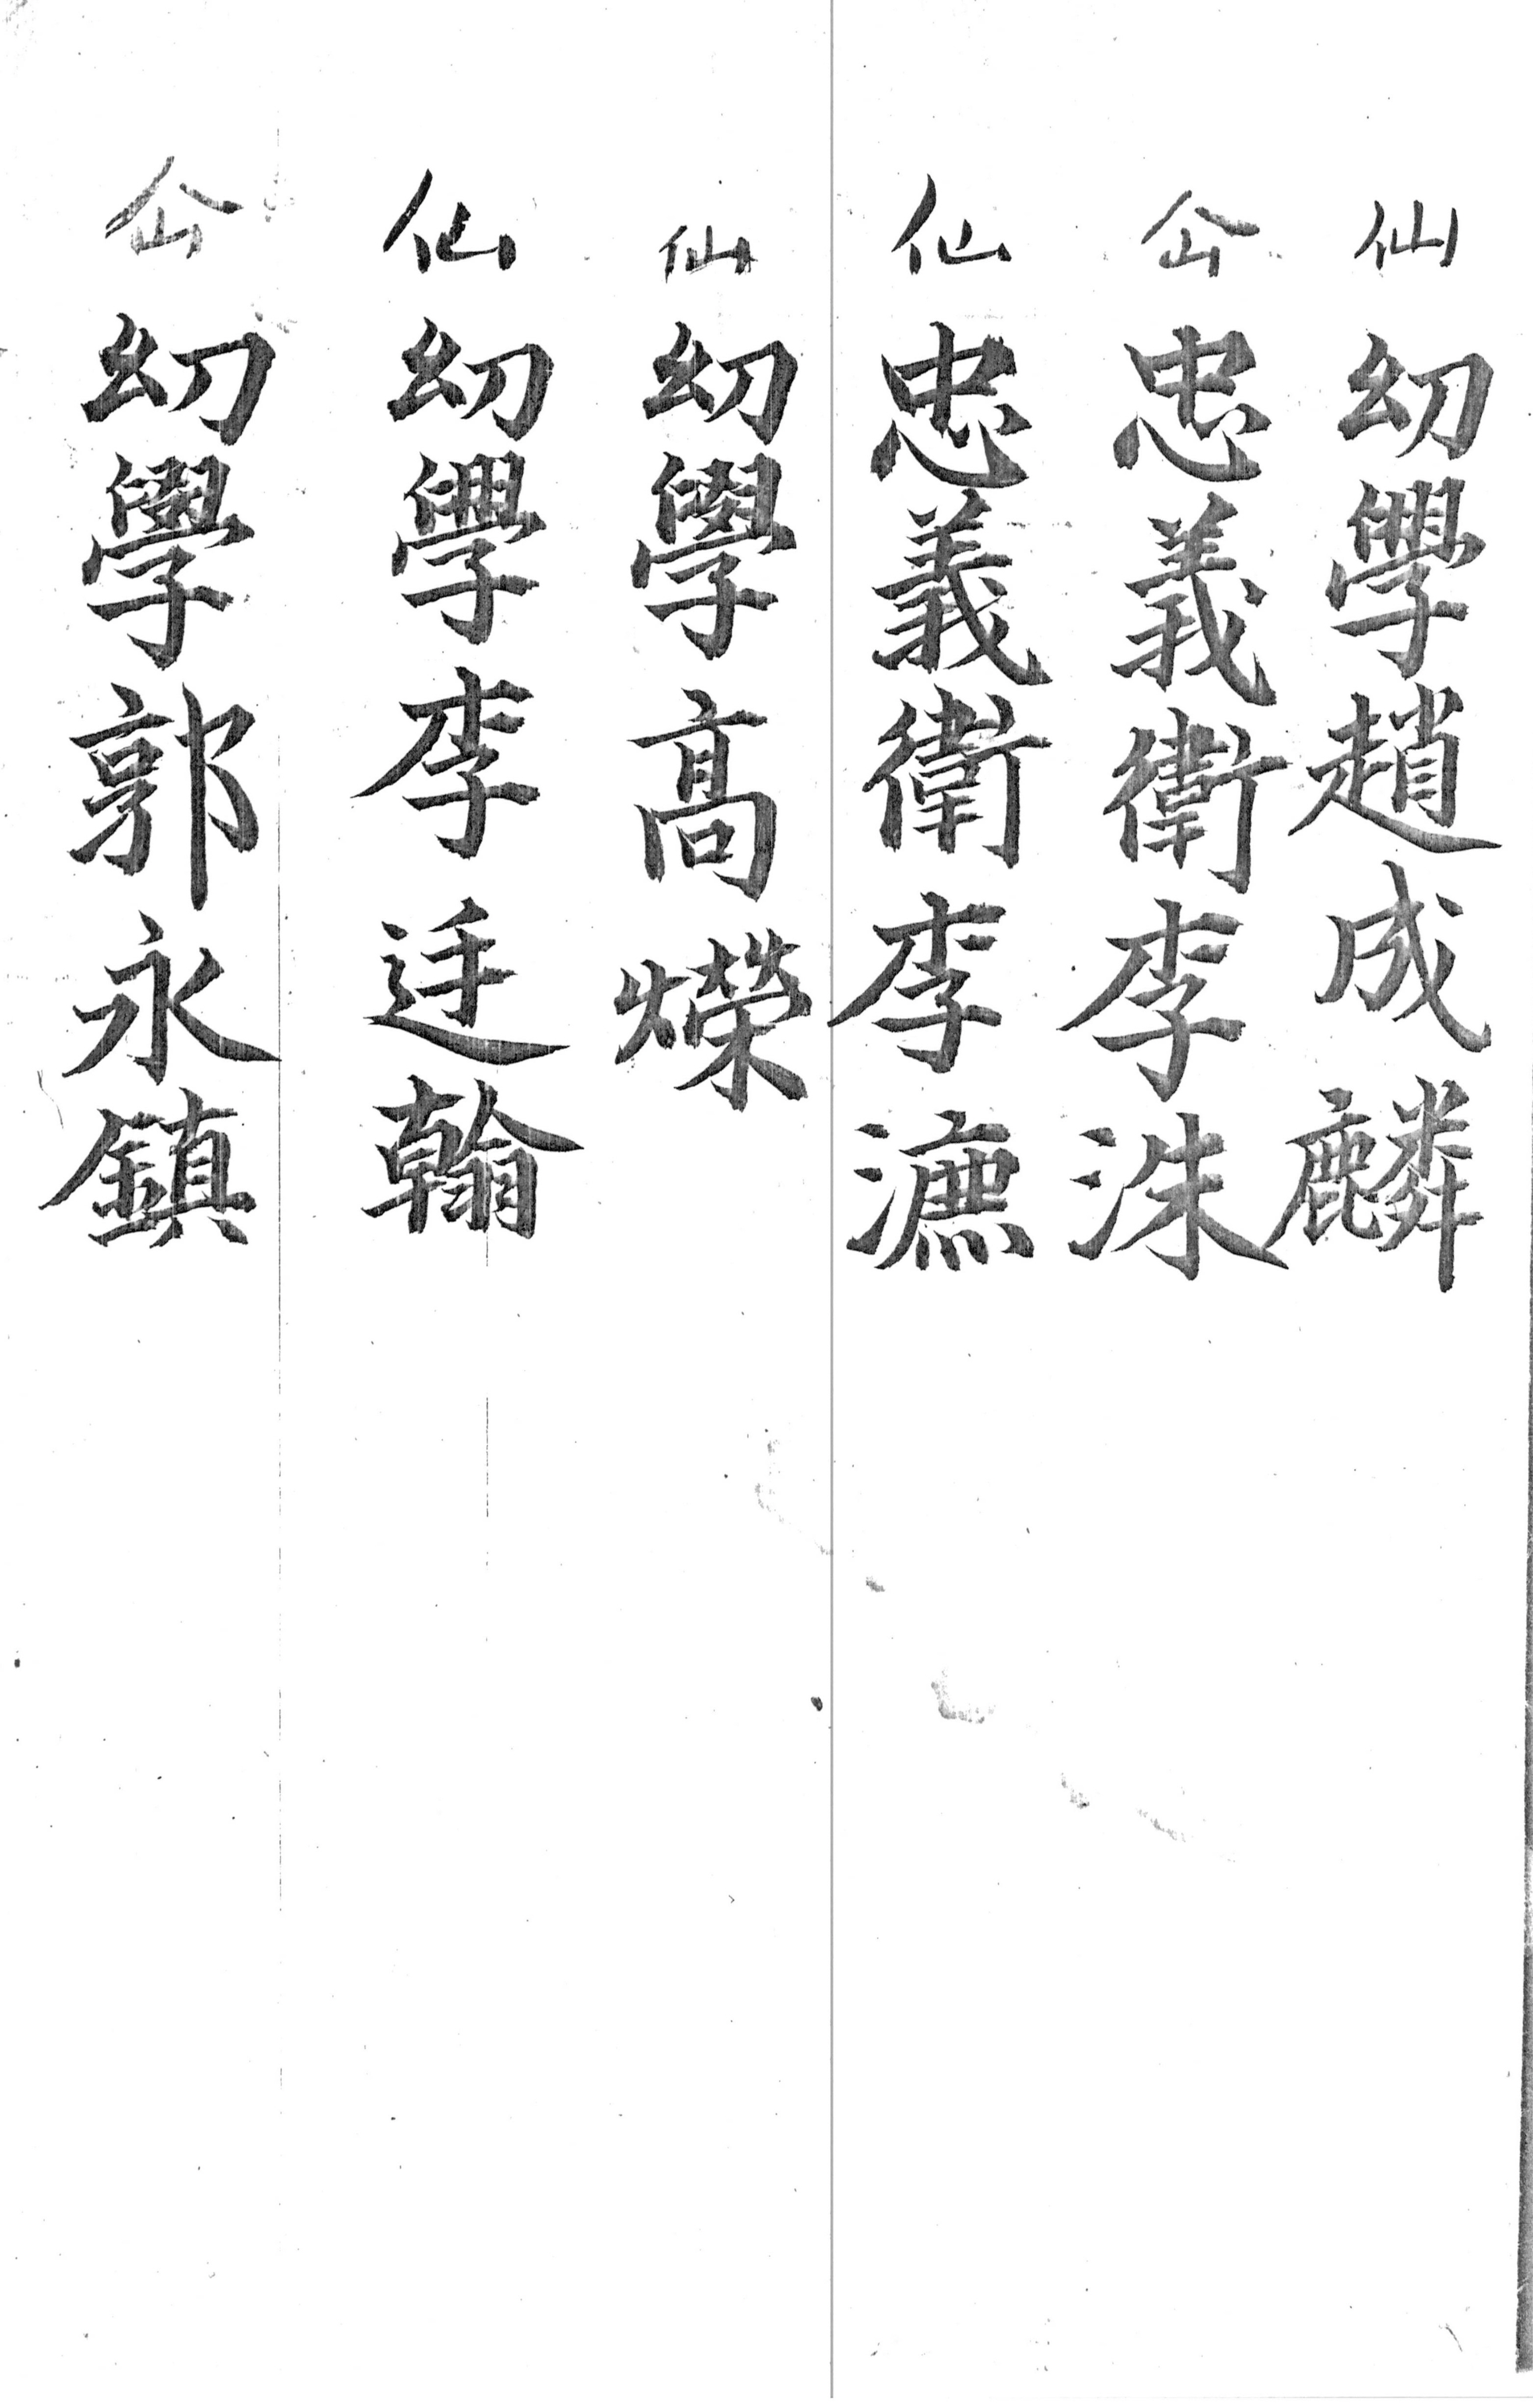 仙 幼學趙成麟
仚 忠義衛李洙
仙 忠義衛李瀌
仙 幼學高爃
仙 幼學李廷翰
仚 幼學郭永鎮